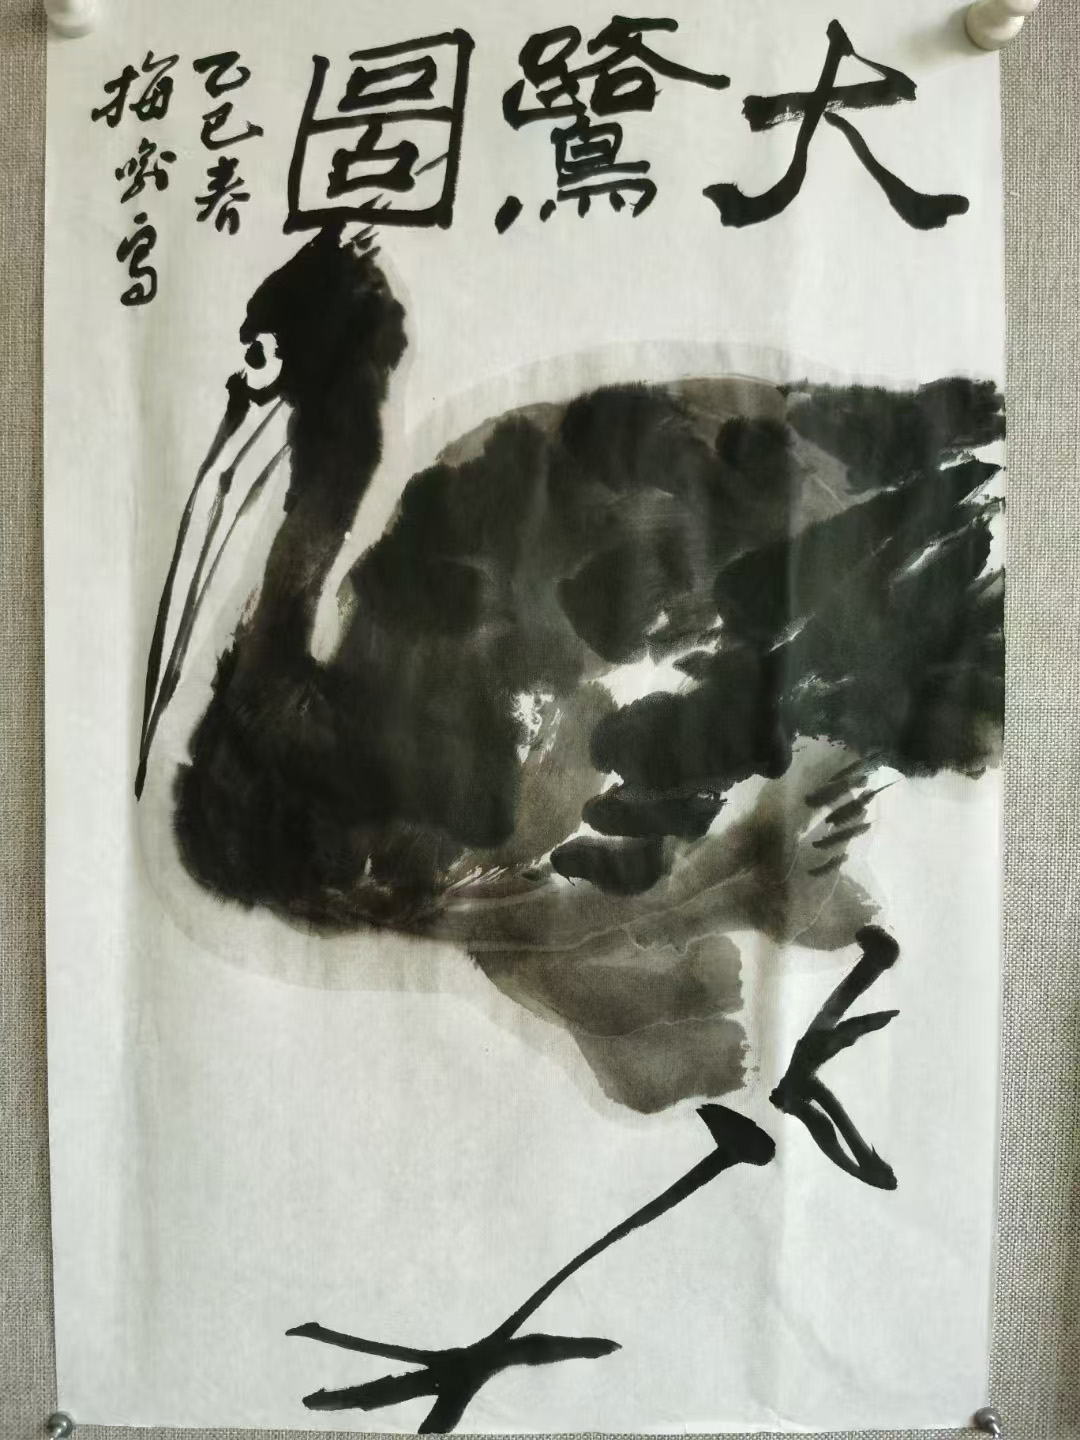 大鷺圖
乙巳春
梅 寫